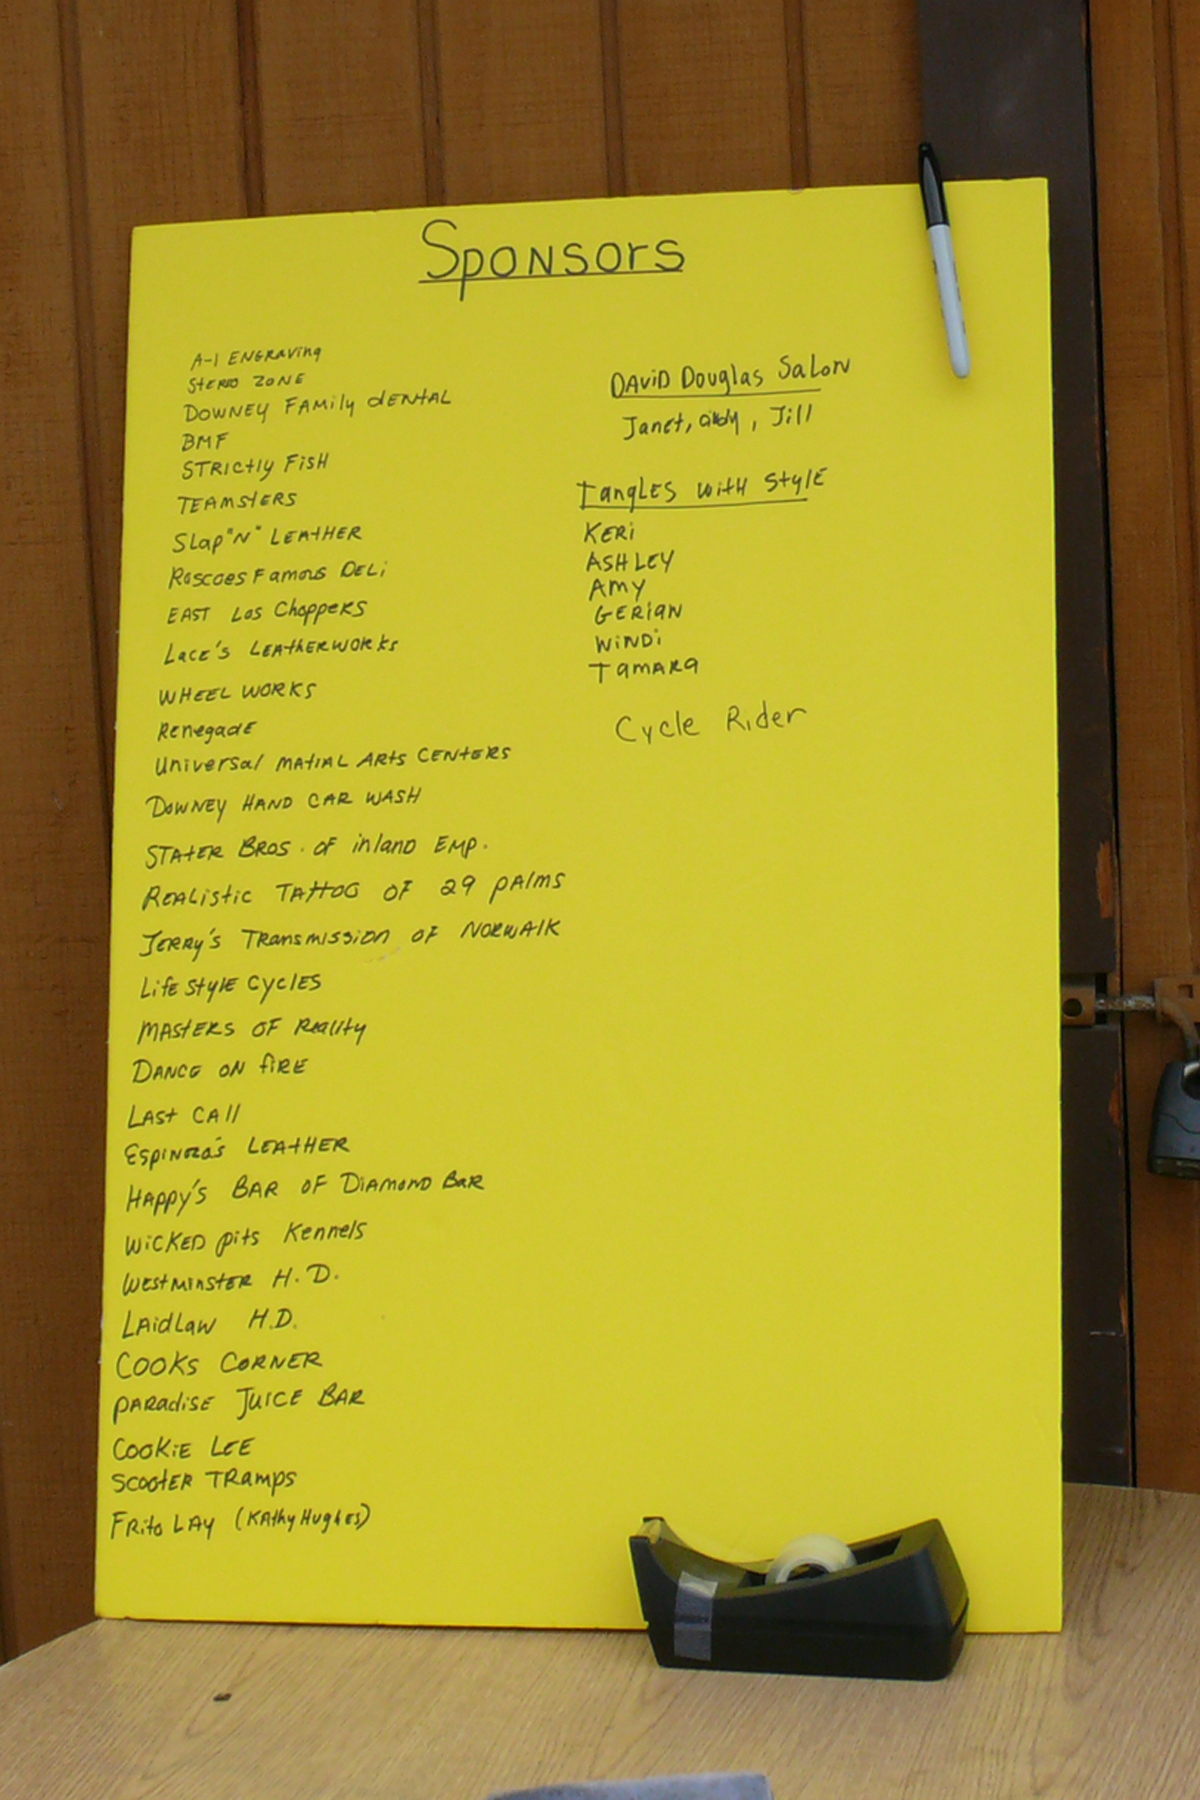 Sponsors
A-1 ENGRAVING
STEREO ZONE
DOWNEY FAMILY DENTAL
BMF
STRICTLY FISH
TEAMSTERS
SLAP "N" LEATHER
Roscoes Famous DELI
EAST Los Choppers
Lace's LEATHERWORKS
WHEEL WORKS
Renegade
Universal MATIAL ARTS CENTERS
DOWNEY HAND CAR WASH
STATER BROS. OF inland EMP.
REALISTIC TATTOO OF 29 PALMS
JERRY'S TRANSMISSION OF NORWALK
Life STYLE CYCLES
MASTERS OF REALITY
DANCE ON FIRE
LAST CALL
ESPINOZA'S LEATHER
HAPPY'S BAR OF DIAMOND BAR
WICKED pits Kennels
WESTMINSTER H.D.
LAIDLAW H.D.
COOKS CORNER
PARADISE JUICE BAR
COOKIE LEE
SCOOTER TRAMPS
FRITO LAY (KATHY HUGHES)
DAVID Douglas SALON
Janet, Cindy, Jill
TANGLES WITH STYLE
KERI
ASHLEY
AMY
GERIAN
WINDI
TAMARA
Cycle Rider